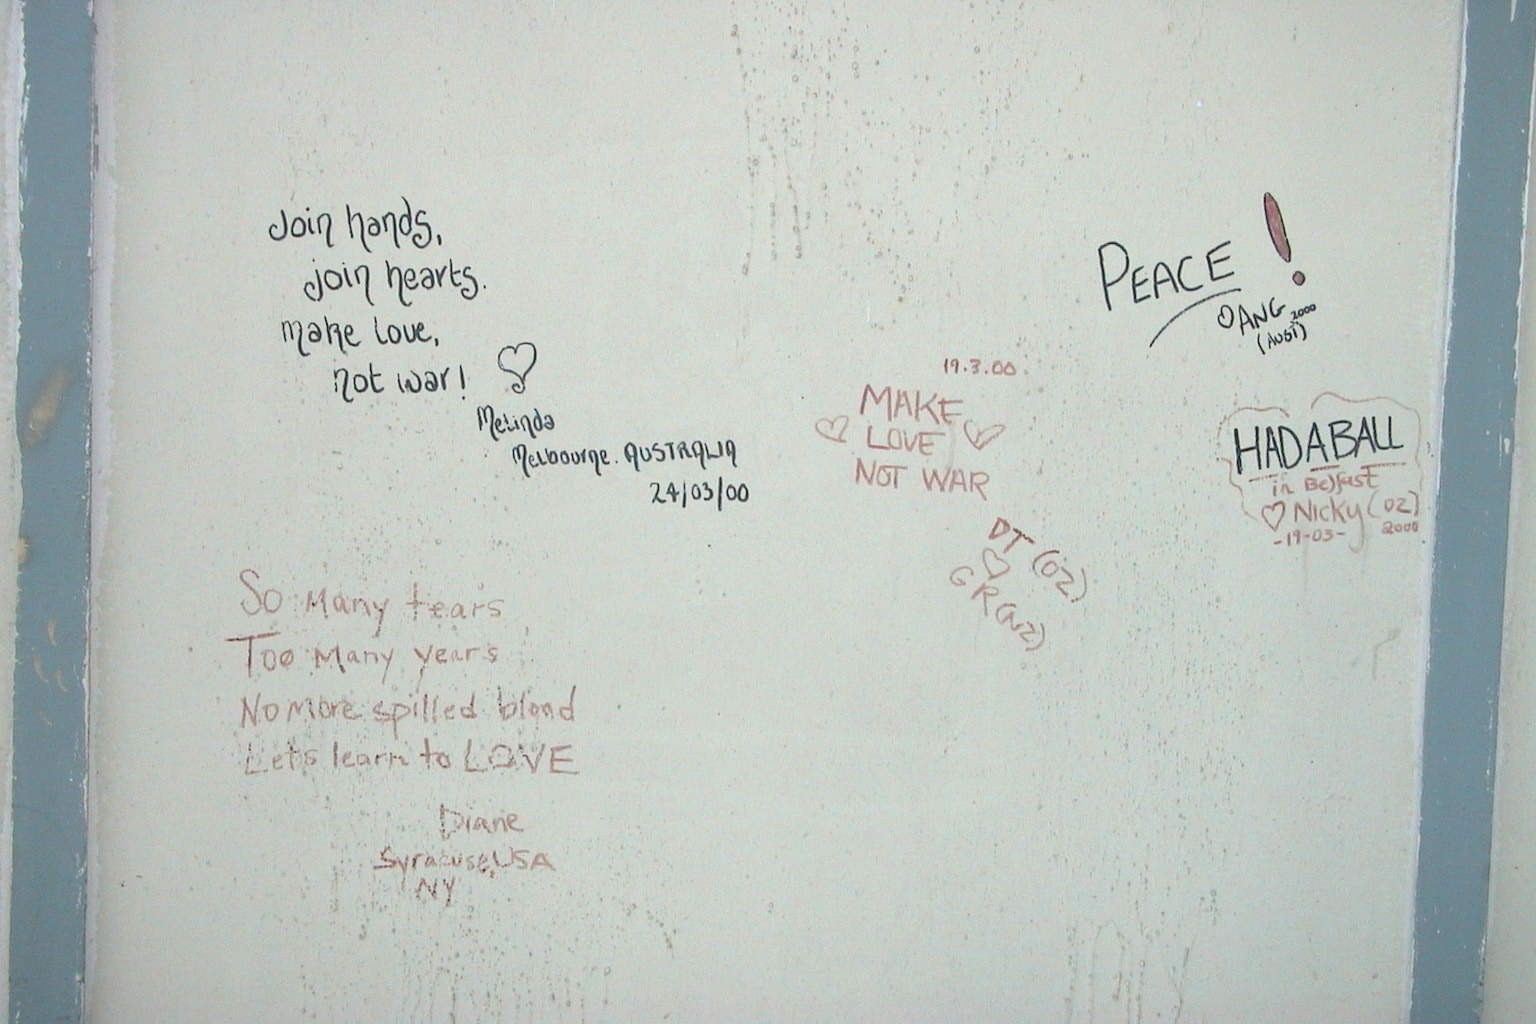 Join hands,
join hearts.
make love,
not war!
Melinda
Melbourne. AUSTRALIA
24/03/00
So Many tears
Too Many years
No More spilled blood
Lets learn to LOVE
Diane
Syracuse, USA
NY
19.3.00.
MAKE
LOVE
NOT WAR
DT (OZ)
GR (NZ)
PEACE!
DANG 2000
(AUST)
HADABALL
in Belfast
Nicky (OZ)
-19-03- 2000